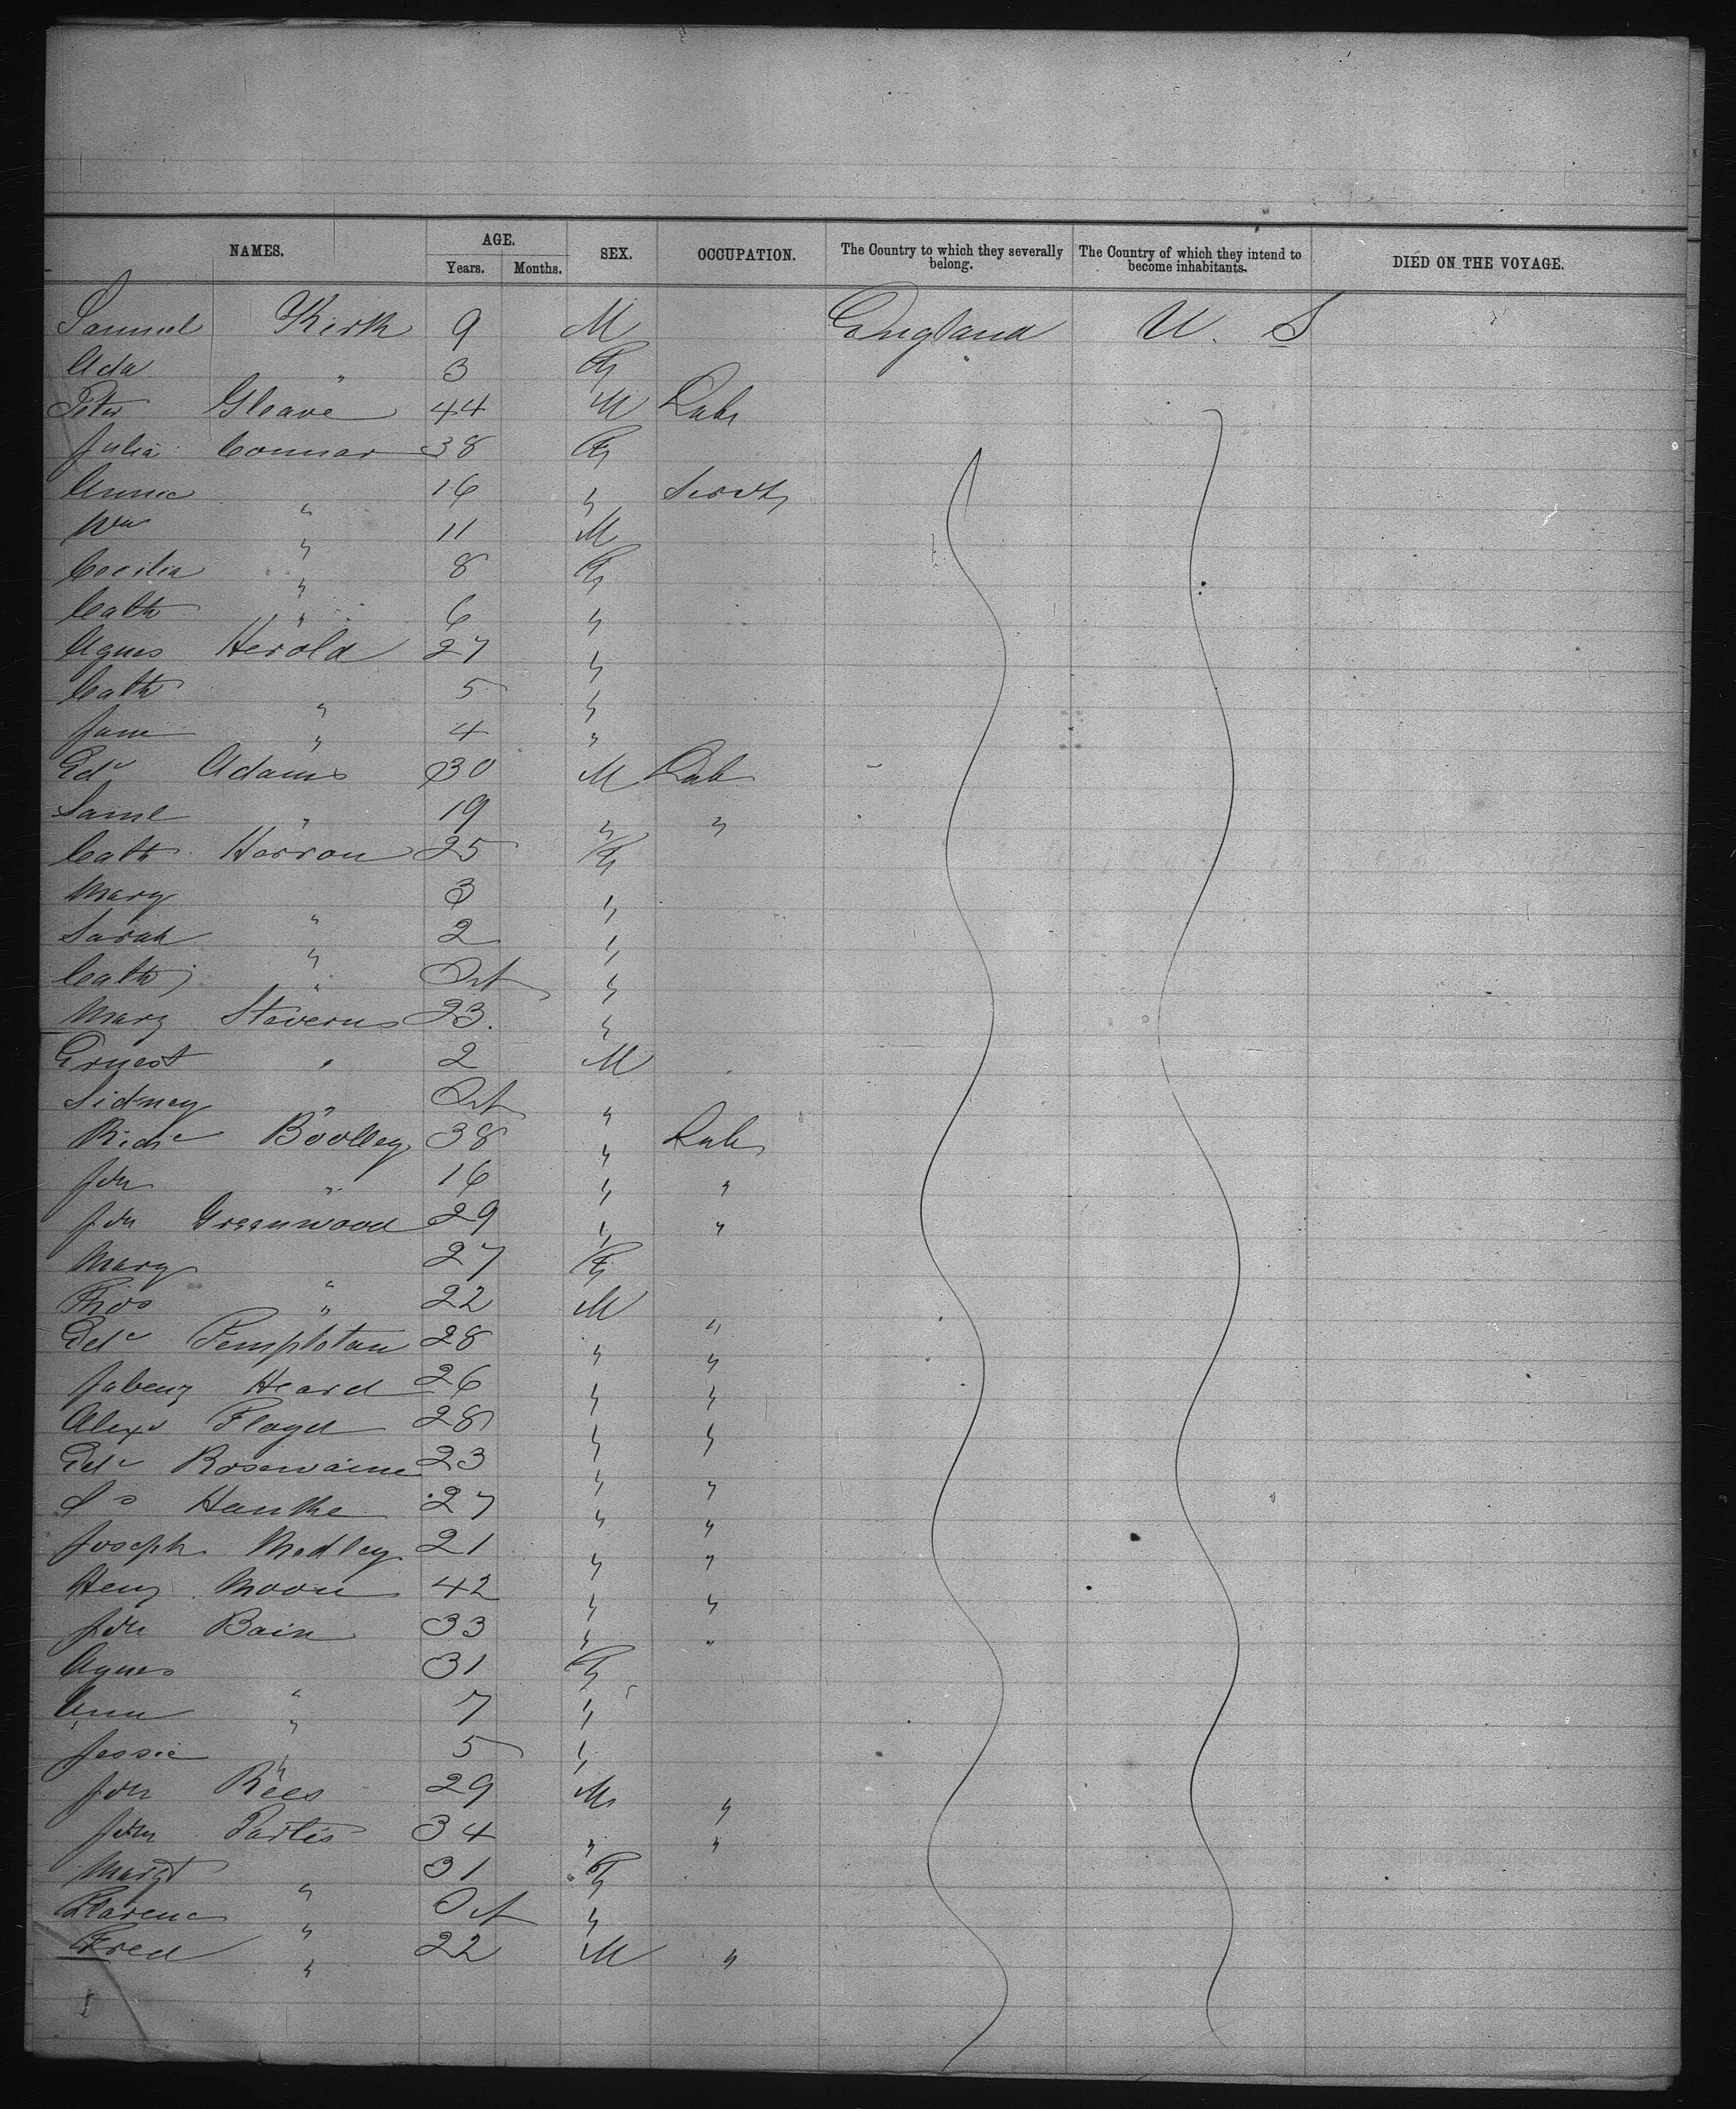 NAMES. AGE. SEX. OCCUPATION. The Country to which they severally belong. The Country of which they intend to become inhabitants. DIED ON THE VOYAGE.
Years. Months.
Samuel Kirk 9 M England U. S
Ada " 3 F
Peter Gleave 44 M Lab
Julia Connar 38 F
Annie " 16 " Servt
Wm " 11 M
Cecilia " 8 F
Cath " 6 "
Agnes Herold 27 "
Cath " 5 "
Jane " 4 "
Edw Adams 30 M Lab
Saml " 19 " "
Cath Harron 25 F
Mary " 3 "
Sarah " 2 "
Cath " Inf "
Mary Steverns 23 "
Ernest " 2 M
Sidney " Inf "
Richd Boolley 38 " Lab
Jno " 16 " "
Jno Greenwood 29 " "
Mary " 27 F
Thos " 22 M "
Edw Templetan 28 " "
Jabenz Heard 26 " "
Alexr Floyd 28 " "
Edw 23 " "
Hanthe 27 " "
Joseph Medley 21 " "
Heny Moon 42 " "
Jno Bain 33 " "
Agnes " 31 F
Ann " 7 "
Jessie " 5 "
Jno Rees 29 M "
Jno Partis 34 " "
Margt " 31 F
Clarence " Inf "
Fred " 22 M "